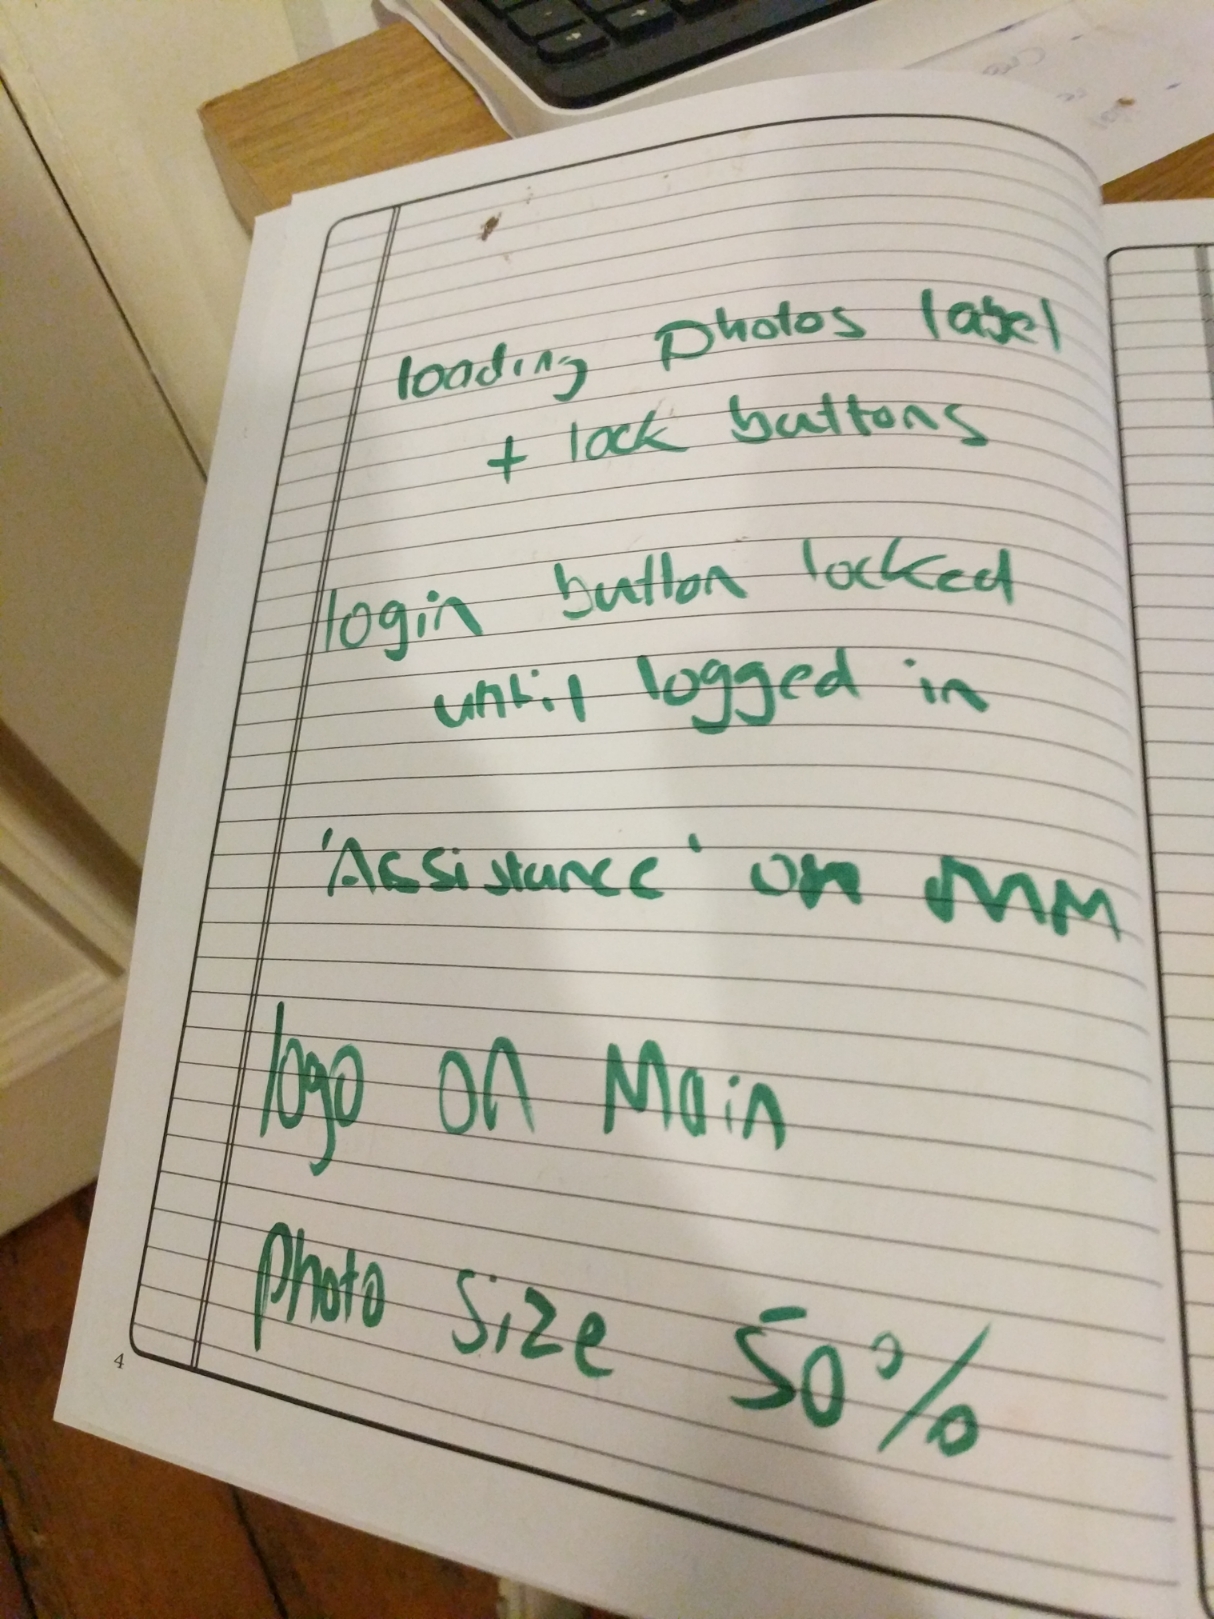 loading photos label
+ lock buttons
login button locked
until logged in
'Assistance' on MM
logo on Main
photo size 50%
4